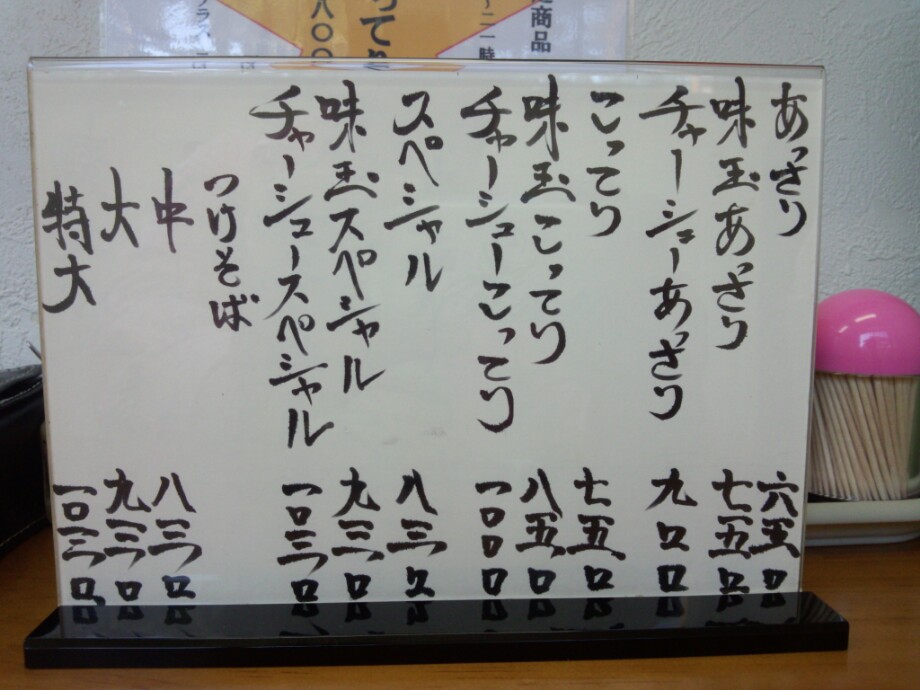 あっさり 六五〇
味玉あっさり 七五〇
チャーシューあっさり 九〇〇
こってり 七五〇
味玉こってり 八五〇
チャーシューこってり 一〇〇〇
スペシャル 八三〇
味玉スペシャル 九三〇
チャーシュースペシャル 一〇三〇
つけそば
中 八三〇
大 九三〇
特大 一〇三〇
商品
〜二一時
ってり
八〇〇
プラス